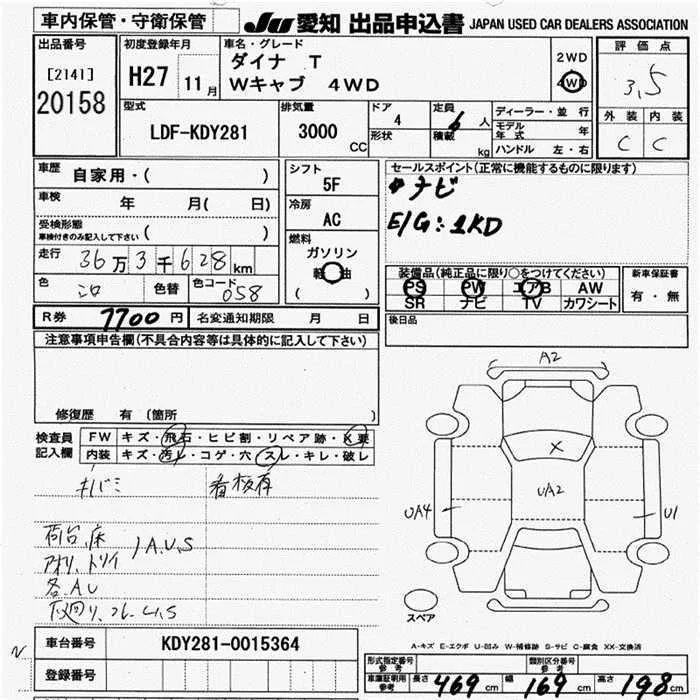 車内保管・守衛保管
JU 愛知 出品申込書 JAPAN USED CAR DEALERS ASSOCIATION
出品番号
[2141]
20158
初度登録年月
H27 11月
車名・グレード
ダイナ T
Wキャブ 4WD
2WD
4WD
評価点
3.5
外装 内装
C C
型式
LDF-KDY281
排気量
3000 CC
ドア
4
形状
定員
6 人
積載
kg
ディーラー・並行
モデル年式 年
ハンドル 左・右
車歴
自家用・( )
車検
年 月( 日)
受検形態
車検付きのみ記入して下さい ( )
走行
36万3千628km
色
シロ
色替
色コード
058
シフト
5F
冷房
AC
燃料
ガソリン
軽油
( )
セールスポイント(正常に機能するものに限ります)
ナビ
E/G:1KD
装備品(純正品に限り○をつけてください)
PS PW エアB AW
SR ナビ TV カワシート
新車保証書
有・無
R券 7700円
名変通知期限 月 日
後日品
注意事項申告欄(不具合内容等は具体的に記入して下さい)
修復歴 有(箇所 )
検査員記入欄
FW キズ・飛石・ヒビ割・リペア跡・X要
内装 キズ・汚レ・コゲ・穴・スレ・キレ・破レ
キバミ
看板有
荷台床
アオリ、トリイ
A.U.S
各AU
下廻り、フレームS
A2
X
UA2
UA4
U1
スペア
車台番号
KDY281-0015364
登録番号
A-キズ E-エクボ U-凹み W-補修跡 S-サビ C-腐食 XX-交換済
形式指定番号
参考
類別区分番号
参考
車庫証明用
参考
長さ 469cm 幅 169cm 高さ 198cm